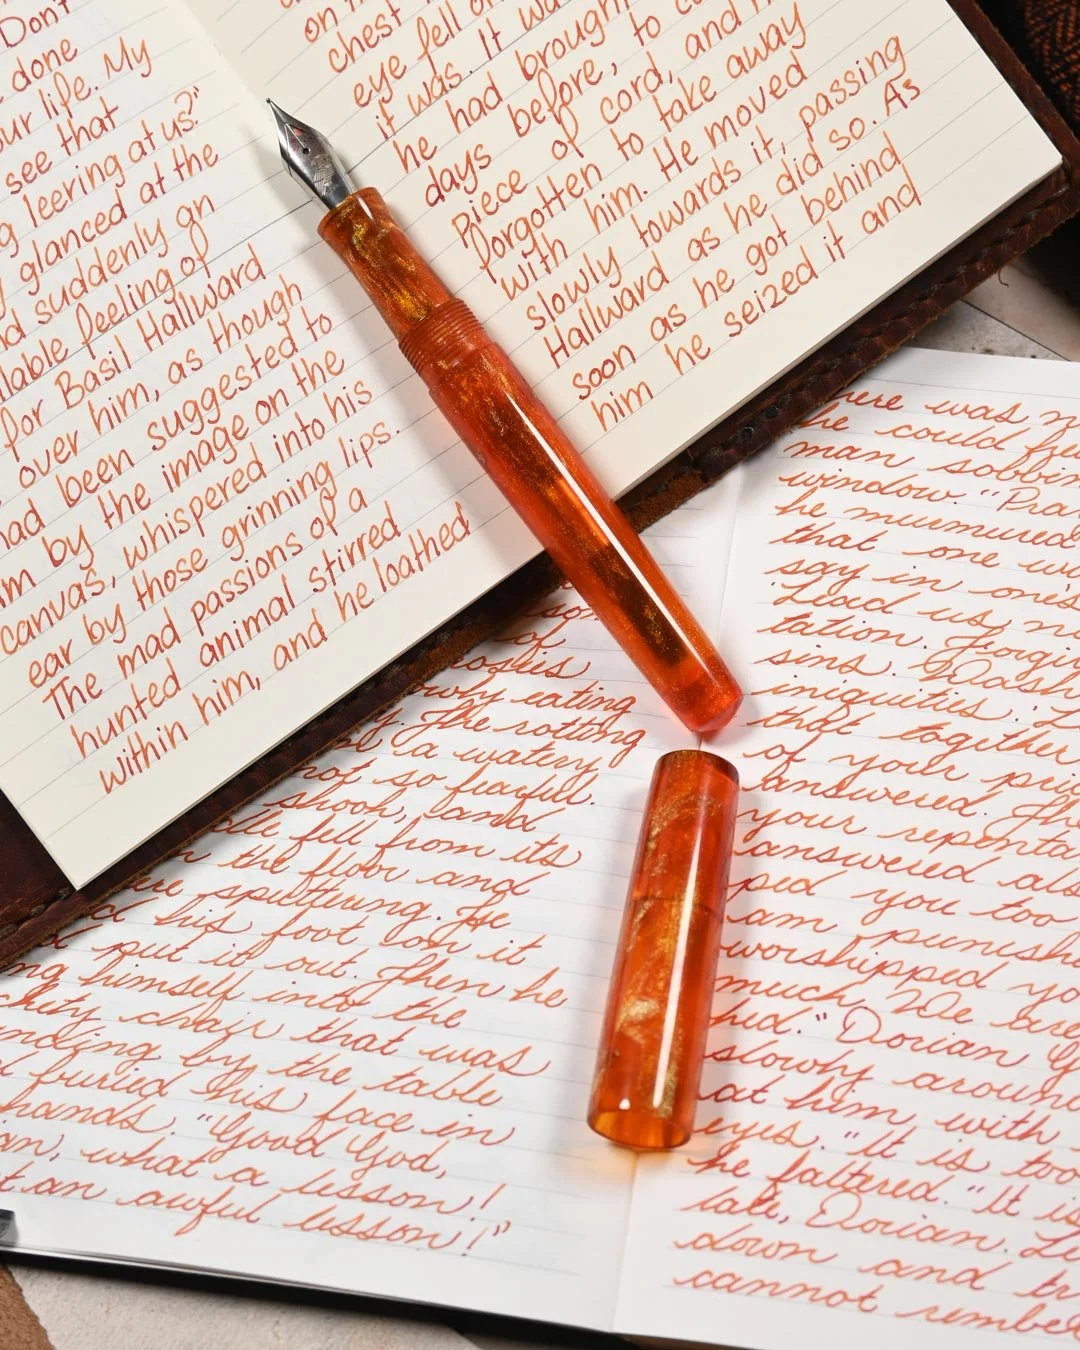 Don't
done
our life. My
see that
leering at us?"
glanced at the
suddenly an
feeling of
for Basil Hallward
over him, as though
had been suggested to
by the image on the
canvas, whispered into his
ear by those grinning lips.
The mad passions of a
hunted animal stirred
within him, and he loathed
on
chest
eye fell on
it was. It
he had brought
days before, to
piece of cord, and
forgotten to take away
with him. He moved
slowly towards it, passing
Hallward as he did so. As
soon as he got behind
him he seized it and
of
eating
The rotting
a watery
not so fearful.
shook, and
fell from its
the floor and
sputtering. He
his foot on it
put it out. Then he
himself into the
chair that was
by the table
buried his face in
hands. "Good God,
what a lesson!
an awful lesson!"
was
he could
man sobbing
window. "Pray
he murmured
that one
say in one's
'Lead us
tation. Forgive
sins. Wash
iniquities.'
that together
of your
answered. The
your
answered also
you too
am punished
worshipped
much. We are
"Dorian
slowly around
at him with
eyes. "It is too
he faltered. "It is
late, Dorian.
down and
cannot rember